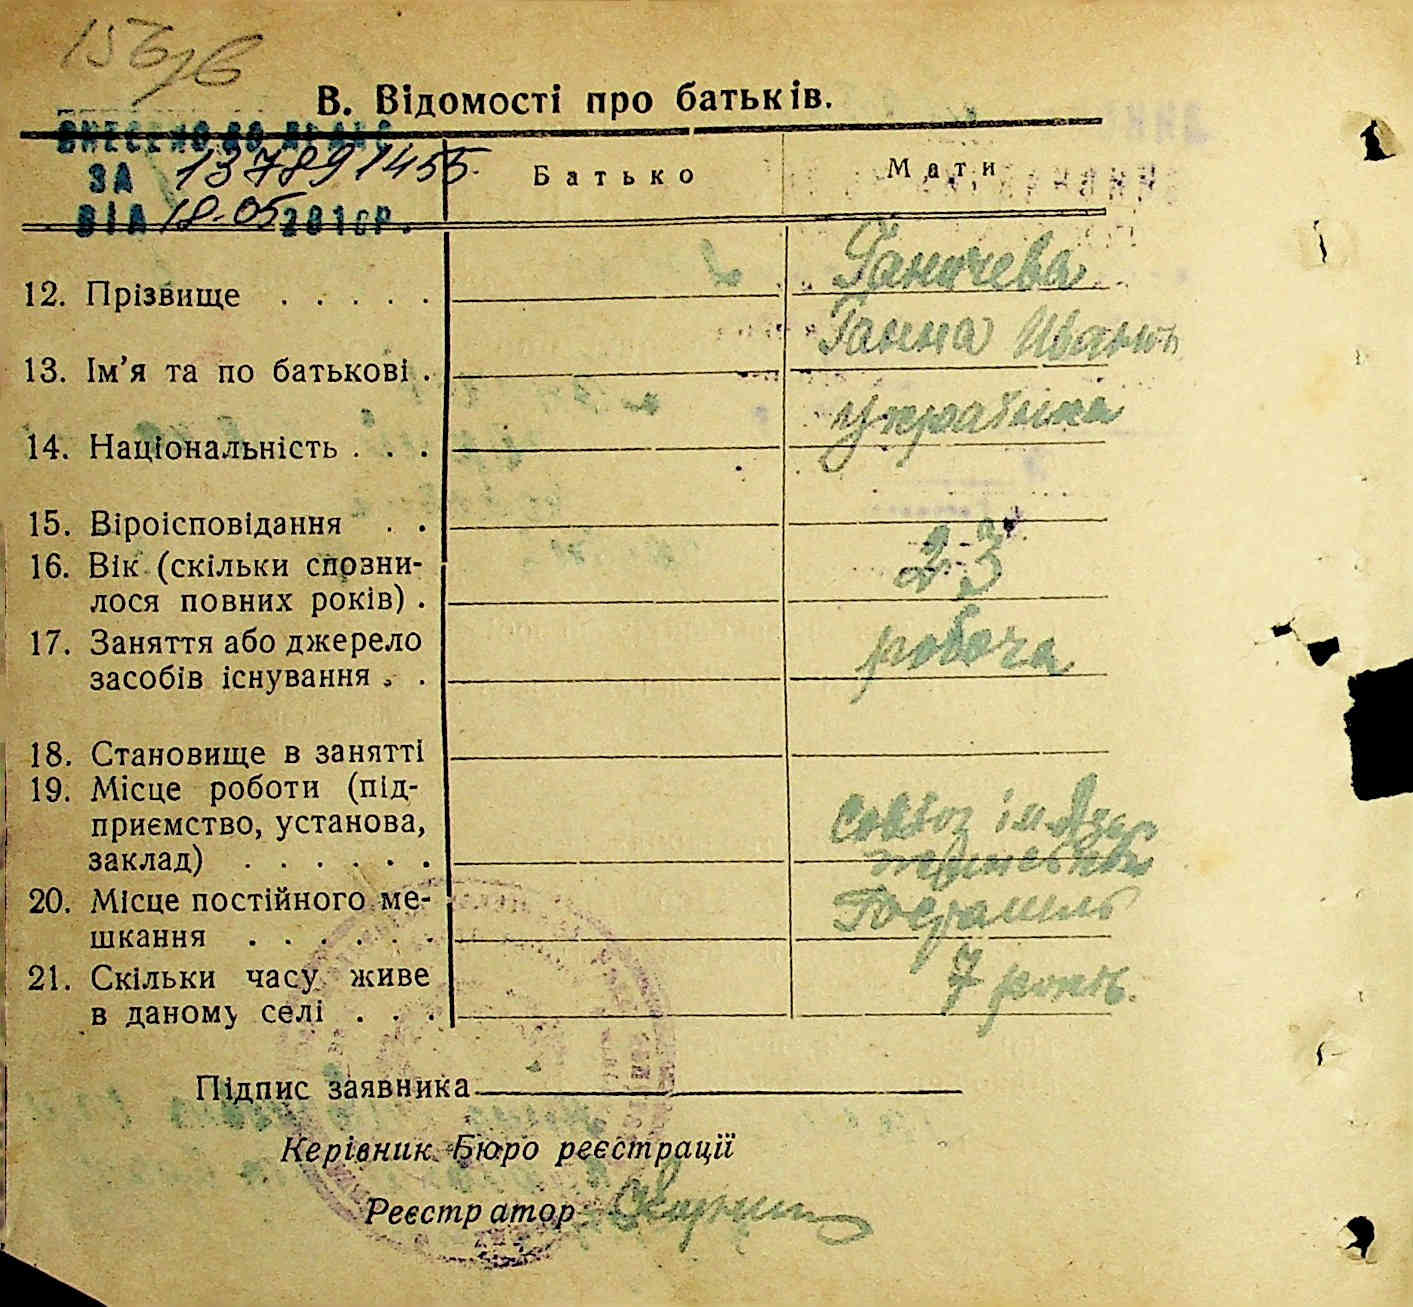 156/в
В. Відомості про батьків.
ВНЕСЕНО ДО ДРАЦС
ЗА 137891455
ВІД 18-05 2010Р.
Батько Мати
12. Прізвище . . . . . Ганичева
13. Ім’я та по батькові . Ганна Иванів
14. Національність . . . українка
15. Віроісповідання . .
16. Вік (скільки сповни-
лося повних років) . 23
17. Заняття або джерело
засобів існування . . робоча
18. Становище в занятті
19. Місце роботи (під-
приємство, установа,
заклад) . . . . . . совхоз ім. Дзер
жинсько
20. Місце постійного ме-
шкання . . . . . .
21. Скільки часу живе
в даному селі . . . 7 років.
Підпис заявника
Керівник Бюро реєстрації
Реєстратор